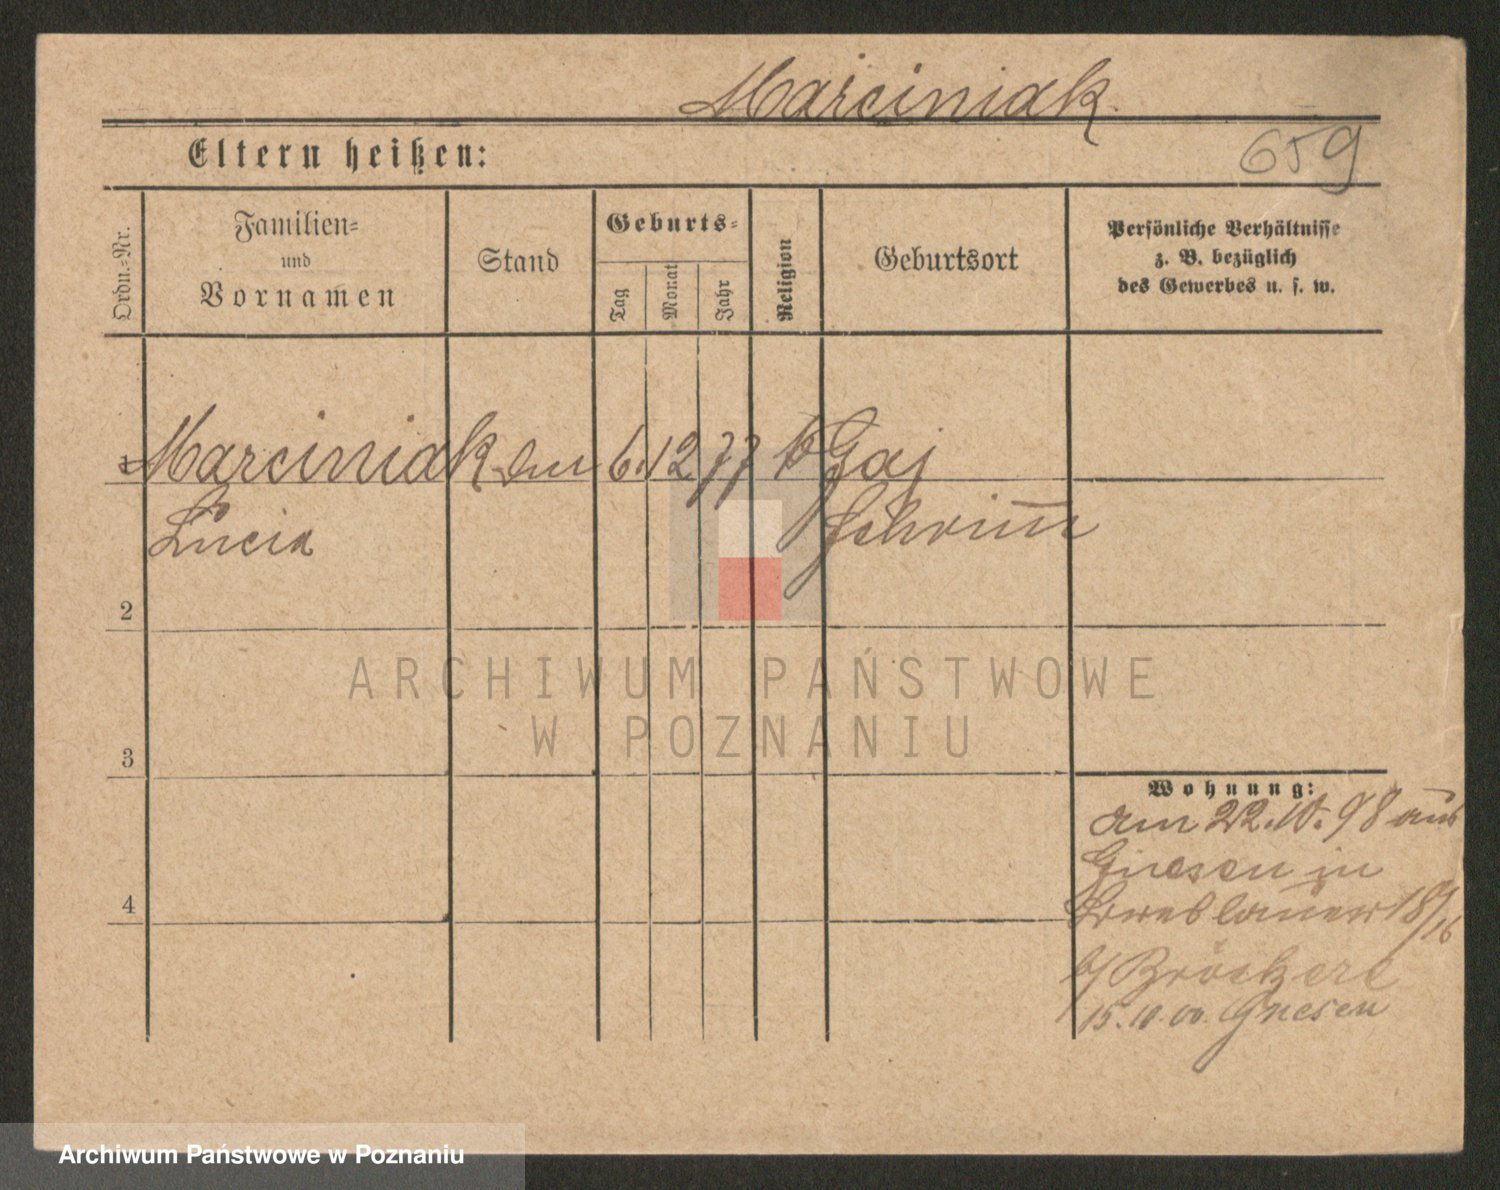 Marciniak.
659
Eltern heißen:
Ordn.-Nr.
Familien-
und
Vornamen
Stand
Geburts-
Tag
Monat
Jahr
Religion
Geburtsort
Persönliche Verhältnisse
z. B. bezüglich
des Gewerbes u. s. w.
1 Marciniak 6. 12 77 k Gaj
Lucia Schrimm
2
ARCHIWUM PAŃSTWOWE
W POZNANIU
3
Wohnung:
am 22.10.98 aus
Gnesen in
Breslauer 18/16
b/ Bröckere
4
15.10.00. Gnesen
Archiwum Państwowe w Poznaniu